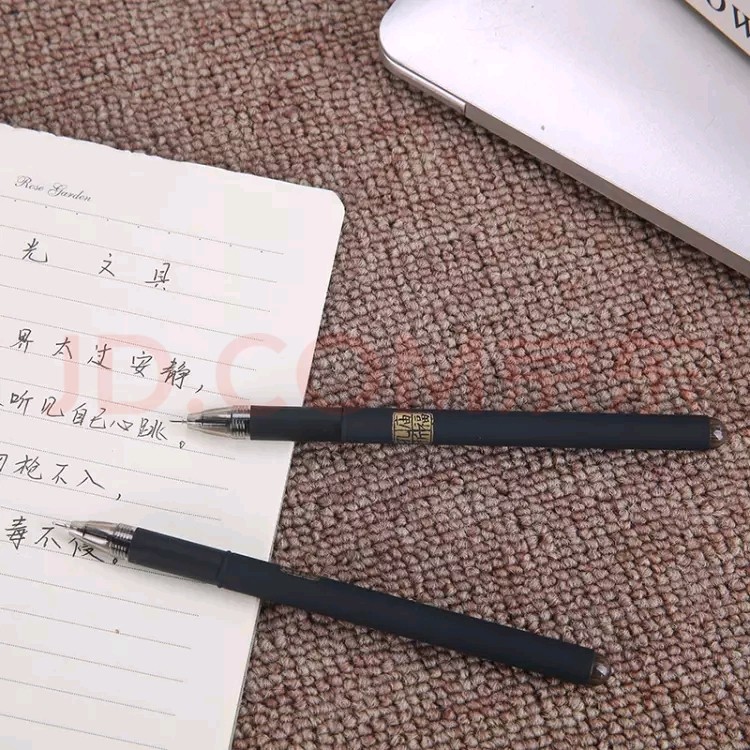 OW
Rose Garden
光 文 具
界太过安静,
听见自己心跳。
枪不入,
毒不侵。
JD.COM京东
孔庙祈福